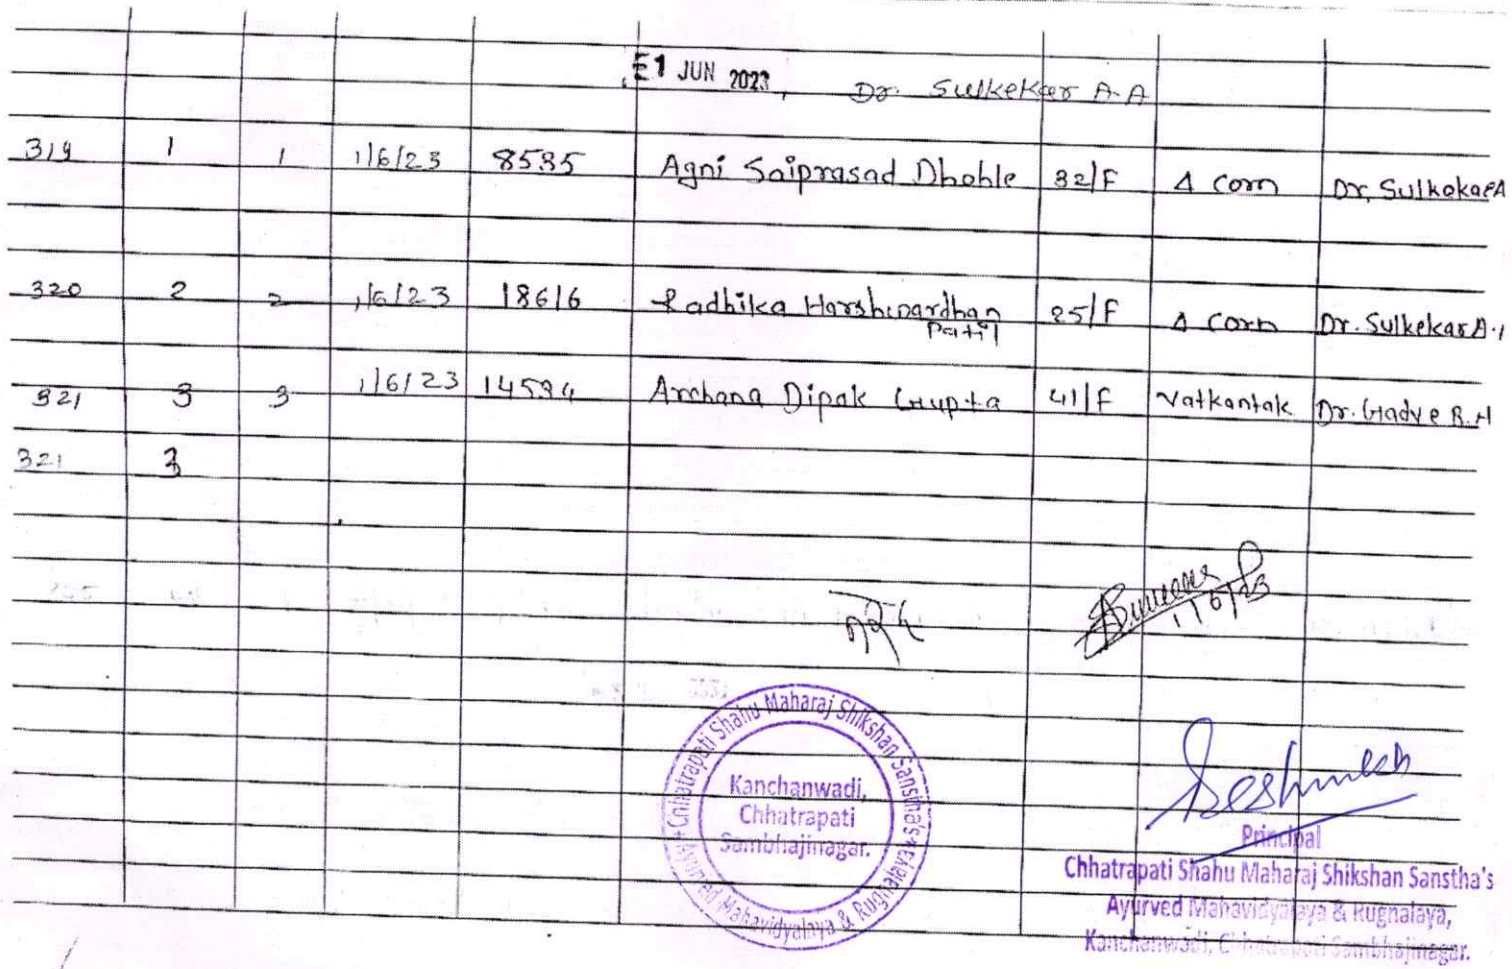 1 JUN 2023, Dr. Sulkekar A.A
319 1 1 1/6/23 8535 Agni Saiprasad Dhohle 32/F Δ corn Dr. Sulkekar A
320 2 2 1/6/23 18616 Radhika Harshvardhan Patil 25/F Δ corn Dr. Sulkekar A.
321 3 3 1/6/23 14534 Archana Dipak Gupta 41/F Vatkantak Dr. Gadve R.H
321 3
1/6/23
Chhatrapati Shahu Maharaj Shikshan Sanstha's
Ayurved Mahavidyalaya & Rugnalaya
Kanchanwadi,
Chhatrapati
Sambhajinagar.
Principal
Chhatrapati Shahu Maharaj Shikshan Sanstha's
Ayurved Mahavidyalaya & Rugnalaya,
Kanchanwadi, Chhatrapati Sambhajinagar.